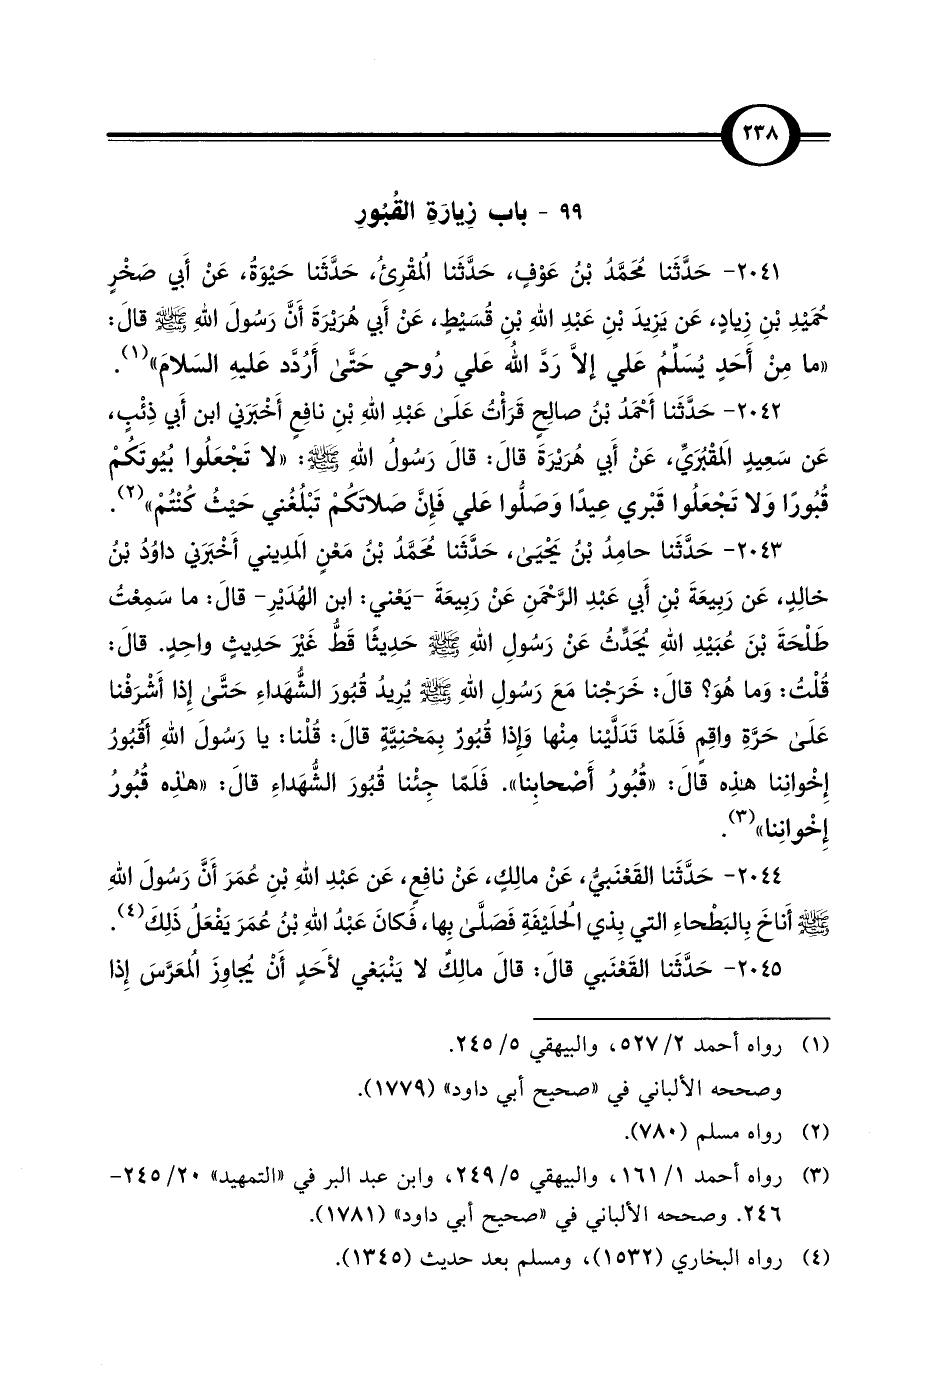 ٢٣٨
٩٩ - باب زِيارَةِ القُبُورِ
٢٠٤١- حَدَّثَنا مُحَمَّدُ بْنُ عَوْفٍ، حَدَّثَنا الُمقْرِئُ، حَدَّثَنا حَيْوَةُ، عَنْ أَبي صَخْرٍ
حُمَيْدِ بْنِ زِيادٍ، عَن يَزِيدَ بْنِ عَبْدِ اللهِ بْنِ قُسَيْطٍ، عَنْ أَبي هُرَيْرَةَ أَنَّ رَسُولَ اللهِ ﷺ قالَ:
«ما مِنْ أَحَدٍ يُسَلِّمُ عَلي إلاَّ رَدَّ اللهُ عَلي رُوحي حَتَّىٰ أَرُدَّد عَليهِ السَلامَ»(١).
٢٠٤٢- حَدَّثَنا أَحْمَدُ بْنُ صالِحٍ قَرَأْتُ عَلَىٰ عَبْدِ اللهِ بْنِ نافِعٍ أَخْبَرَني ابن أَبي ذِئْبٍ،
عَن سَعِيدٍ المَقْبُرَيِّ، عَنْ أَبي هُرَيْرَةَ قالَ: قالَ رَسُولُ اللهِ ﷺ: «لا تَجْعَلُوا بُيُوتَكُمْ
قُبُورًا وَلا تَجْعَلُوا قَبْري عِيدًا وَصَلُّوا عَلي فَإِنَّ صَلاتَكُمْ تَبْلُغُني حَيْثُ كُنْتُمْ»(٢).
٢٠٤٣- حَدَّثَنا حامِدُ بْنُ يَحْيَىٰ، حَدَّثَنا مُحَمَّدُ بْنُ مَعْنٍ الَمدِيني أَخْبَرَني داوُدُ بْنُ
خالِدٍ، عَن رَبِيعَةَ بْنِ أَبي عَبْدِ الرَّحْمَنِ عَنْ رَبِيعَةَ -يَعْني: ابن الهُدَيْرِ- قالَ: ما سَمِعْتُ
طَلْحَةَ بْنَ عُبَيْدِ اللهِ يُحَدِّثُ عَنْ رَسُولِ اللهِ ﷺ حَدِيثًا قَطُّ غَيْرَ حَدِيثٍ واحِدٍ. قالَ:
قُلْتُ: وَما هُوَ؟ قالَ: خَرَجْنا مَعَ رَسُولِ اللهِ ﷺ يُرِيدُ قُبُورَ الشُّهَداءِ حَتَّىٰ إِذا أَشْرَفْنا
عَلَىٰ حَرَّةِ واقِمٍ فَلَمّا تَدَلَّيْنا مِنْها وَإِذا قُبُورٌ بِمَحْنِيَّةٍ قالَ: قُلْنا: يا رَسُولَ اللهِ أَقُبُورُ
إِخْوانِنا هذِه قالَ: «قُبُورُ أَصْحابِنا». فَلَمّا جِئْنا قُبُورَ الشُّهَداءِ قالَ: «هذِه قُبُورُ
إِخْوانِنا»(٣).
٢٠٤٤- حَدَّثَنا القَعْنَبيُّ، عَن مالِكٍ، عَنْ نافِعٍ، عَن عَبْدِ اللهِ بْنِ عُمَرَ أَنَّ رَسُولَ اللهِ
ﷺ أَناخَ بِالبَطْحاءِ التي بِذي الُحلَيْفَةِ فَصَلَّىٰ بِها، فَكانَ عَبْدُ اللهِ بْنُ عُمَرَ يَفْعَلُ ذَلِكَ(٤).
٢٠٤٥- حَدَّثَنا القَعْنَبي قالَ: قالَ مالِكٌ لا يَنْبَغي لأَحَدٍ أَنْ يُجاوِزَ الُمعَرَّسَ إِذا
(١) رواه أحمد ٢/ ٥٢٧، والبيهقي ٥/ ٢٤٥.
وصححه الألباني في «صحيح أبي داود» (١٧٧٩).
(٢) رواه مسلم (٧٨٠).
(٣) رواه أحمد ١/ ١٦١، والبيهقي ٥/ ٢٤٩، وابن عبد البر في «التمهيد» ٢٠/ ٢٤٥-
٢٤٦. وصححه الألباني في «صحيح أبي داود» (١٧٨١).
(٤) رواه البخاري (١٥٣٢)، ومسلم بعد حديث (١٣٤٥).